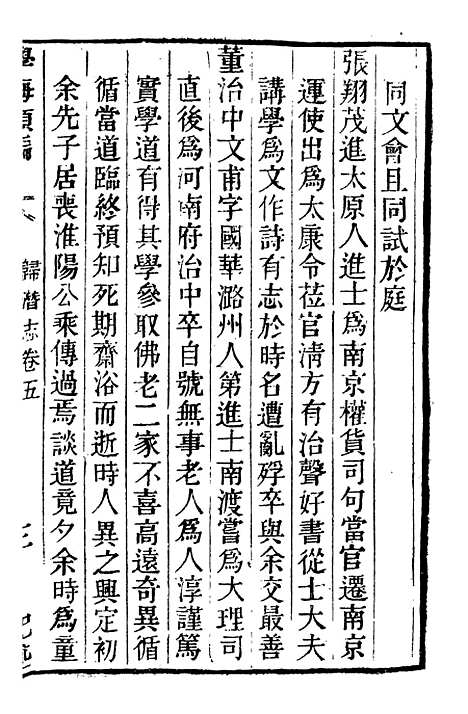 同文會且同試於庭
張翔茂進太原人進士爲南京權貨司句當官遷南京
運使出爲太康令莅官淸方有治聲好書從士大夫
講學爲文作詩有志於時名遭亂殍卒與余交最善
董治中文甫字國華潞州人第進士南渡嘗爲大理司
直後爲河南府治中卒自號無事老人爲人淳謹篤
實學道有得其學參取佛老二家不喜高遠奇異循
循當道臨終預知死期齋浴而逝時人異之興定初
余先子居喪淮陽公乘傳過焉談道竟夕余時爲童
歸潛志卷五